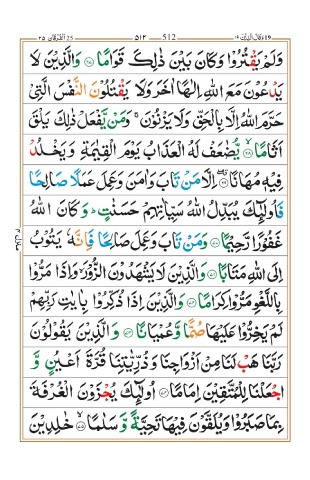 وقال الذین ۱۹ 512 ۵۱۲ الفرقان ۲۵
وَلَمْ يَقْتُرُوْا وَكَانَ بَيْنَ ذٰلِكَ قَوَامًا ﴿۶۷﴾ وَالَّذِيْنَ لَا
يَدْعُوْنَ مَعَ اللّٰهِ اِلٰهًا اٰخَرَ وَلَا يَقْتُلُوْنَ النَّفْسَ الَّتِيْ
حَرَّمَ اللّٰهُ اِلَّا بِالْحَقِّ وَلَا يَزْنُوْنَ ۚ وَمَنْ يَّفْعَلْ ذٰلِكَ يَلْقَ
اَثَامًا ﴿۶۸﴾ يُّضٰعَفْ لَهُ الْعَذَابُ يَوْمَ الْقِيٰمَةِ وَيَخْلُدْ
فِيْهٖ مُهَانًا ﴿۶۹﴾ اِلَّا مَنْ تَابَ وَاٰمَنَ وَعَمِلَ عَمَلًا صَالِحًا
فَاُولٰٓئِكَ يُبَدِّلُ اللّٰهُ سَيِّاٰتِهِمْ حَسَنٰتٍ ؕ وَكَانَ اللّٰهُ
غَفُوْرًا رَّحِيْمًا ﴿۷۰﴾ وَمَنْ تَابَ وَعَمِلَ صَالِحًا فَاِنَّهٗ يَتُوْبُ
اِلَى اللّٰهِ مَتَابًا ﴿۷۱﴾ وَالَّذِيْنَ لَا يَشْهَدُوْنَ الزُّوْرَ ۙ وَاِذَا مَرُّوْا
بِاللَّغْوِ مَرُّوْا كِرَامًا ﴿۷۲﴾ وَالَّذِيْنَ اِذَا ذُكِّرُوْا بِاٰيٰتِ رَبِّهِمْ
لَمْ يَخِرُّوْا عَلَيْهَا صُمًّا وَّعُمْيَانًا ﴿۷۳﴾ وَالَّذِيْنَ يَقُوْلُوْنَ
رَبَّنَا هَبْ لَنَا مِنْ اَزْوَاجِنَا وَذُرِّيّٰتِنَا قُرَّةَ اَعْيُنٍ وَّ
اجْعَلْنَا لِلْمُتَّقِيْنَ اِمَامًا ﴿۷۴﴾ اُولٰٓئِكَ يُجْزَوْنَ الْغُرْفَةَ
بِمَا صَبَرُوْا وَيُلَقَّوْنَ فِيْهَا تَحِيَّةً وَّسَلٰمًا ﴿۷۵﴾ خٰلِدِيْنَ